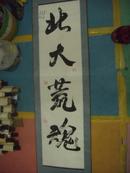 北大荒魂